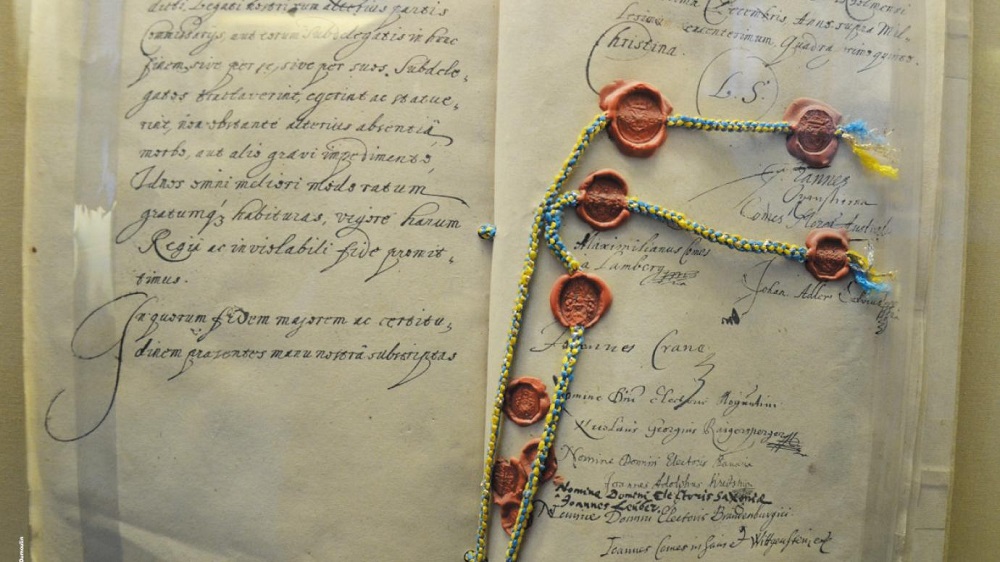 dicti, Legati nostri cum alterius partis
Commissarijs, aut eorum Subdelegatis in hunc
finem, sive per se, sive per suos Subdele-
gatos tractaverint, egerint ac statue-
rint, non obstante alterius absentiâ
morbo, aut alio gravi impedimento,
Idnos omni meliori modo ratum
gratumq₃ habituras, vigore harum
Regiê ac inviolabili fide promit-
timus.
In quorum fidem majorem ac certitu-
dinem præsentes manu nostrâ subscriptas
Decembris, Anno supra Mil-
lesimo
Sexcentesimum, Quadragesimoquinto.
Christina.
L. S.
Johannes
Oxenstierna
Comes
Maximilianus Comes
a Lamberg
Johan Adler Salvius
Joannes Crane
Nomine Dni Electoris Moguntini
Nicolaus Georgius Raigersperger
Nomine Domini Electoris Bavariæ
Joannes Adolphus Krebs
Nomine Domini Electoris Saxoniæ
Joannes Leuber
Nomine Domini Electoris Brandenburgici
Joannes Comes in Sain et Wittgenstein